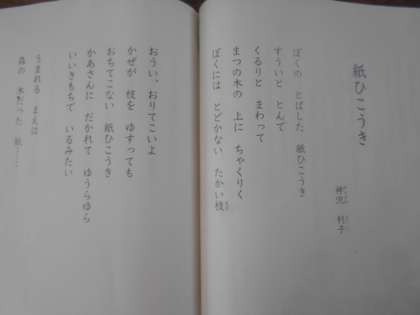 紙ひこうき
神沢 利子
ぼくの とばした 紙ひこうき
すういと とんで
くるりと まわって
まつの木の 上に ちゃくりく
ぼくには とどかない たかい枝
おうい、おりてこいよ
かぜが 枝を ゆすっても
おちてこない 紙ひこうき
かあさんに だかれて ゆうらゆら
いいきもちで いるみたい
うまれる まえは
森の 木だった 紙……